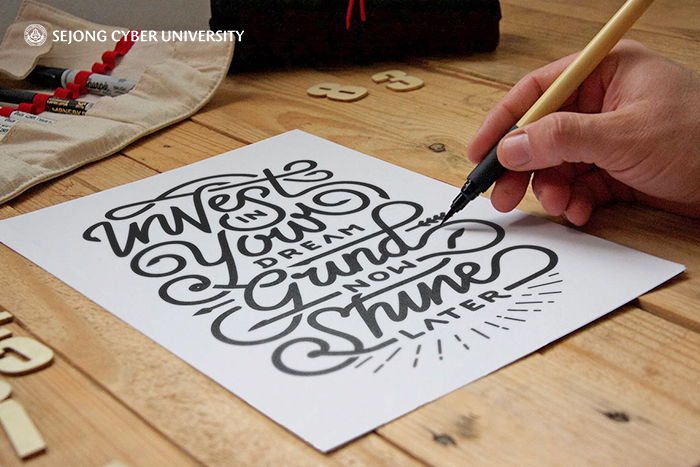 SEJONG CYBER UNIVERSITY
Invest
IN
Your
DREAM
Grind
NOW
Shine
LATER